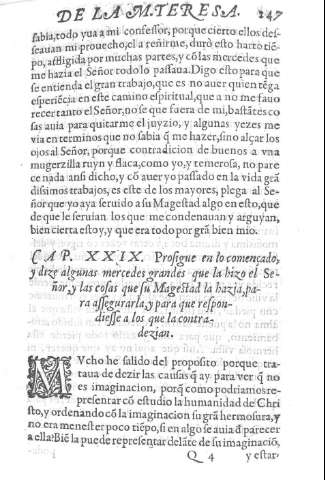 DE LA M. TERESA. 247
sabia, todo yua a mi confessor, porque cierto ellos des-
seauan mi prouecho, el a reñirme, durò esto harto tiẽ-
po, affligida por muchas partes, y cõ las mercedes que
me hazia el Señor todo lo passaua. Digo esto para que
se entienda el gran trabajo, que es no auer quien tẽga
esperiẽcia en este camino espiritual, que a no me fauo
recer tanto el Señor, no se que fuera de mi, bastãtes co
sas auia para quitarme el juyzio, y algunas vezes me
via en terminos que no sabia q̃ me hazer, sino alçar los
ojos al Señor, porque contradicion de buenos a vna
mugerzilla ruyn y flaca, como yo, y temerosa, no pare
ce nada ansi dicho, y cõ auer yo passado en la vida grã
dissimos trabajos, es este de los mayores, plega al Se-
ñor que yo aya seruido a su Magestad algo en esto, que
de que le seruian los que me condenauan y arguyan,
bien cierta estoy, y que era todo por grã bien mio.
CAP. XXIX. Prosigue en lo començado,
y dize algunas mercedes grandes que la hizo el Se-
ñor, y las cosas que su Magestad la hazia, pa-
ra assegurarla, y para que respon-
diesse a los que la contra-
dezian.
MVcho he salido del proposito porque tra-
taua de dezir las causas q̃ ay para ver q̃ no
es imaginacion, porq̃ como podriamos re-
presentar cõ estudio la humanidad de Chri
sto, y ordenando cõ la imaginacion su grã hermosura, y
no era menester poco tiẽpo, si en algo se auia d̃ parecer
a ella? Biẽ la puede representar delãte de su imaginaciõ,
Q 4 y estar-